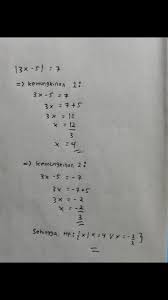 |3x-5| = 7
=> kemungkinan 1:
3x - 5 = 7
3x = 7+5
3x = 12
x = 12/3
x = 4
=> kemungkinan 2:
3x - 5 = -7
3x = -7+5
3x = -2
x = -2/3
Sehingga, HP: {x| x = 4 V x = -2/3}